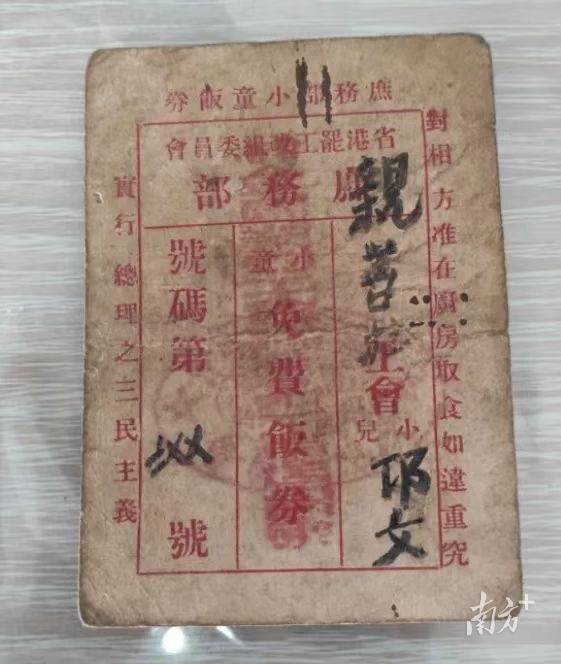 庶務部小童飯券
省港罷工改組委員會
庶務部
對相方准在廚房取食如違重究
親工會
小兒
文
小童
免費飯券
號碼第
號
實行總理之三民主義
南方+